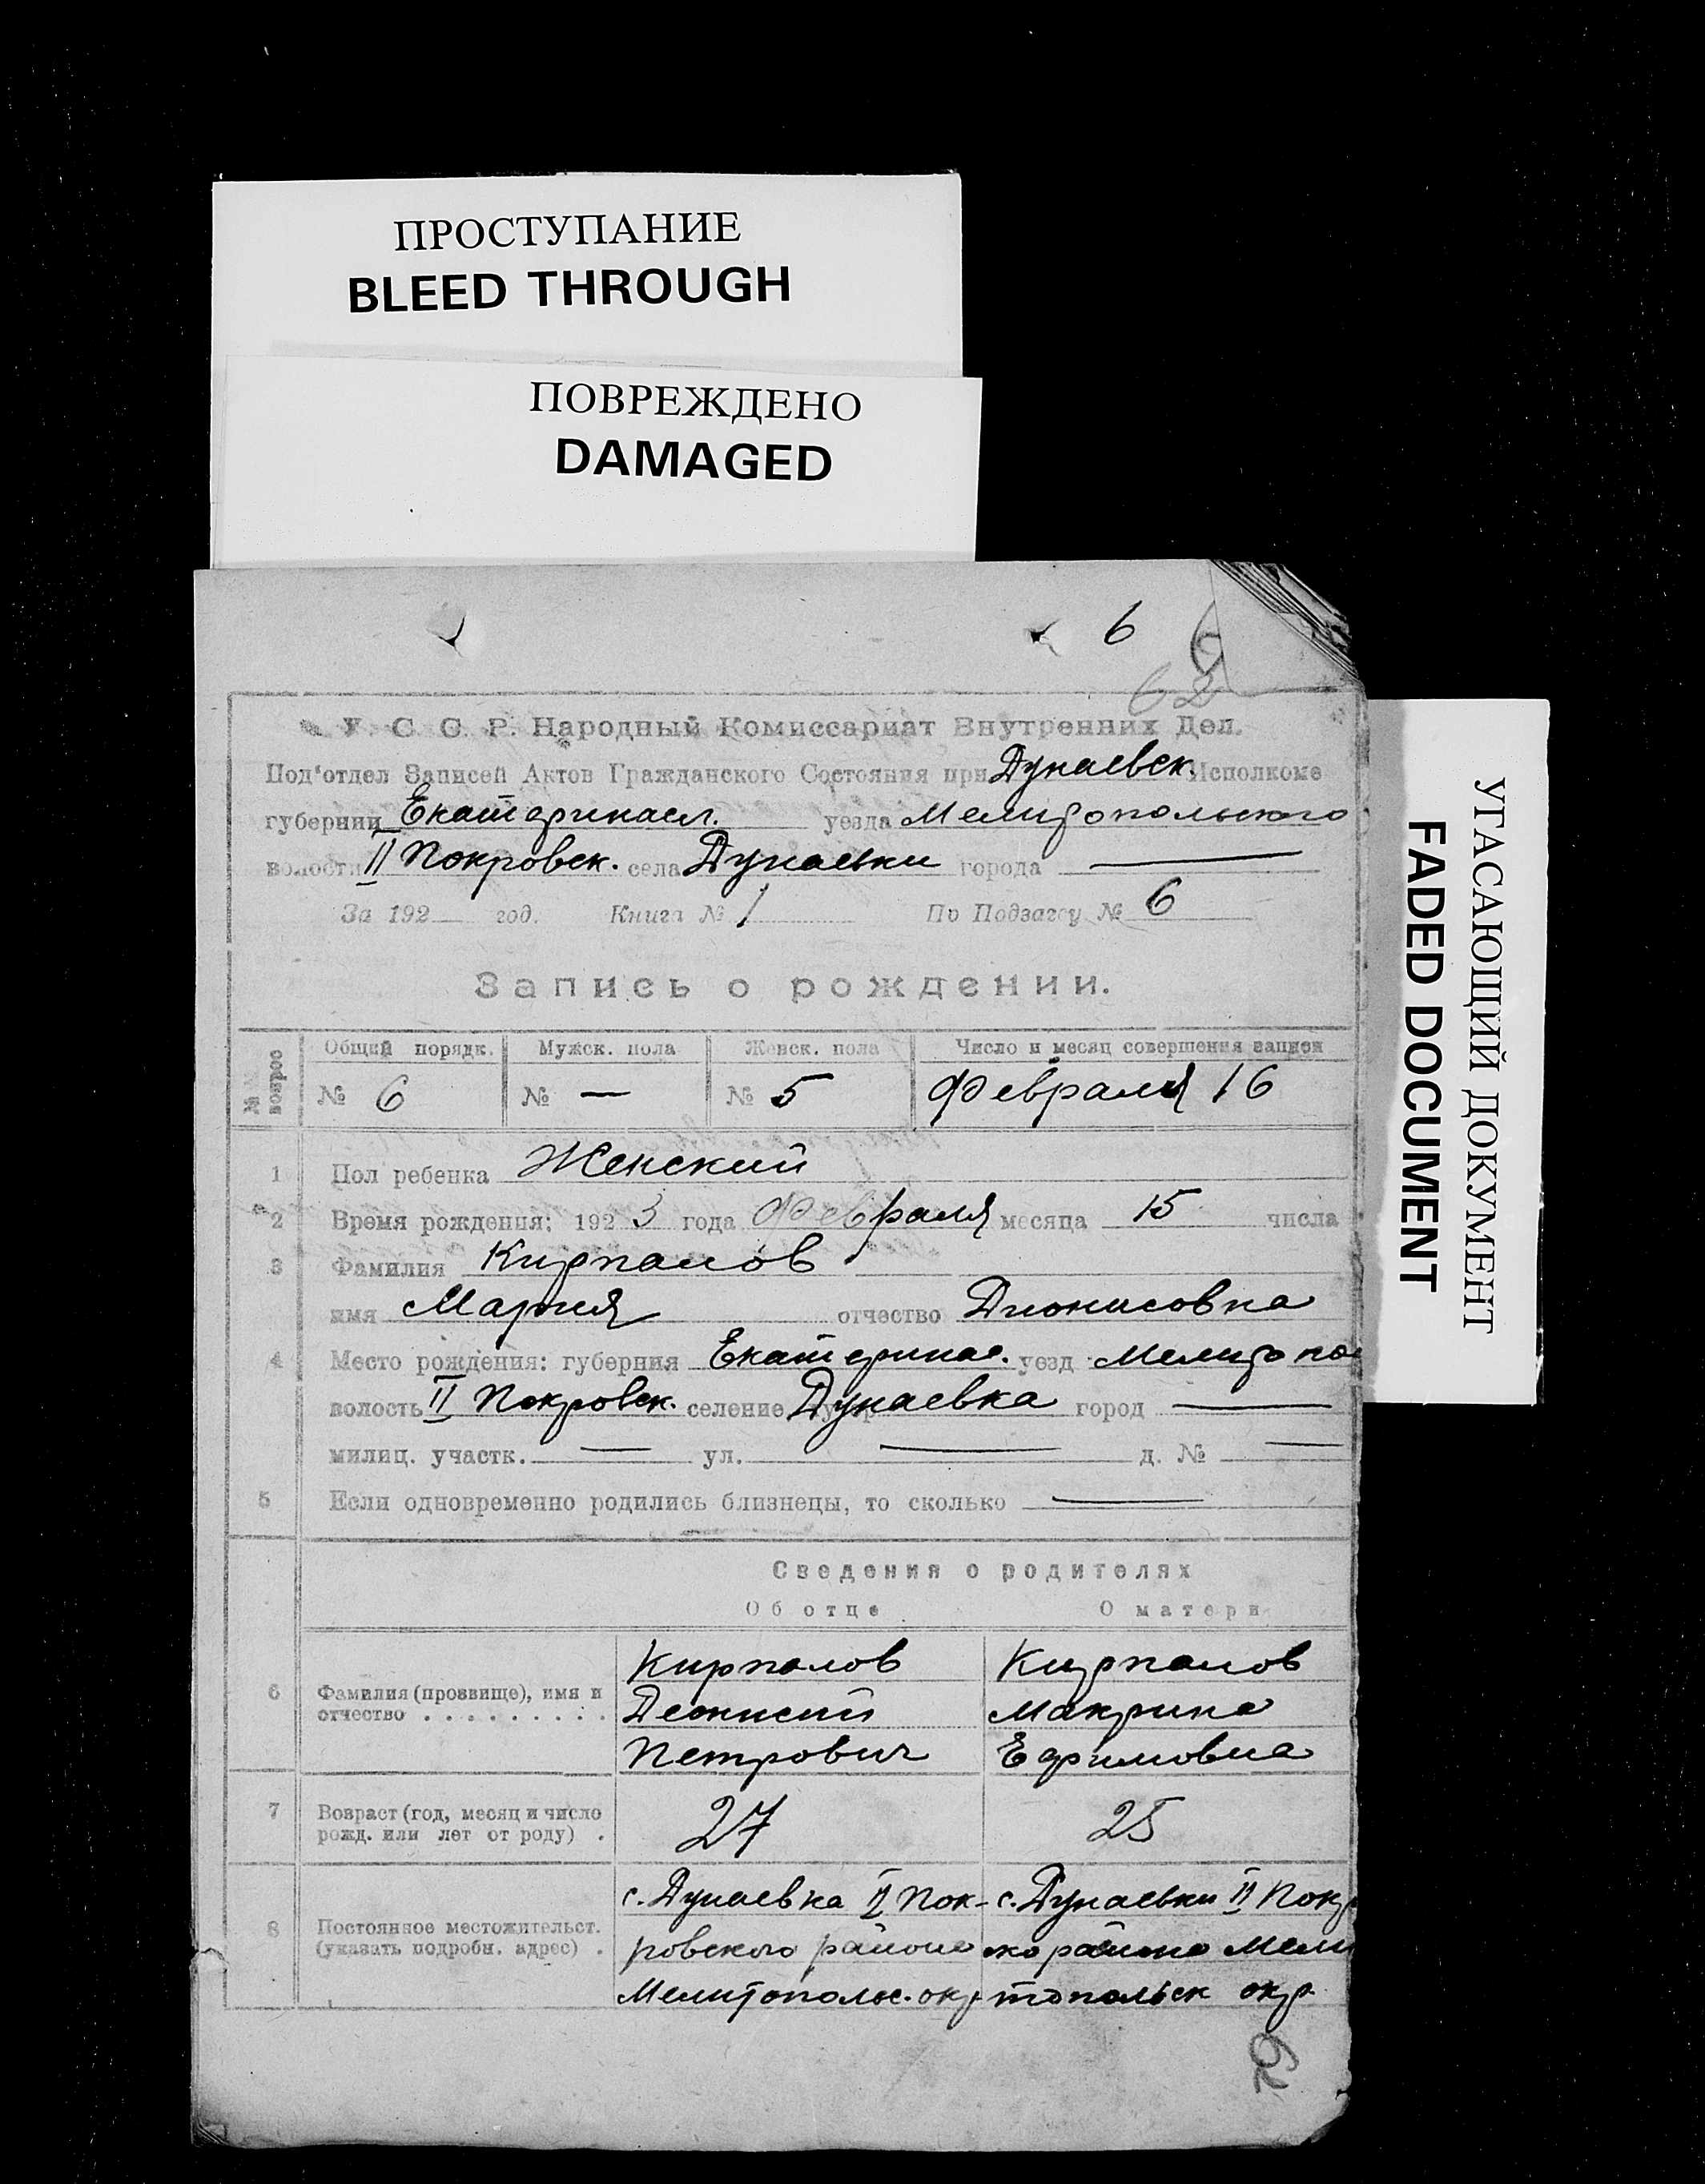 ПРОСТУПАНИЕ
BLEED THROUGH
ПОВРЕЖДЕНО
DAMAGED
6
62
У. С. С. Р. Народный Комиссариат Внутренних Дел.
Под'отдел Записей Актов Гражданского Состояния при Дунаевск. Исполкоме
губернии Екатеринасл. уезда Мелитопольского
волости II Покровск. села Дунаевки города —
За 192 год. Книга № 1 По Подзагсу № 6
Запись о рождении.
№№ вопрос
Общий порядк. Мужск. пола Женск. пола Число и месяц совершения записи
№ 6 № — № 5 Февраля 16
1 Пол ребенка Женский
2 Время рождения: 1923 года Февраля месяца 15 числа
3 Фамилия Кирпалов
имя Мария отчество Дионисовна
4 Место рождения: губерния Екатеринас. уезд Мелитопо
волость II Покровск. селение Дунаевка город —
милиц. участк. — ул. — д. № —
5 Если одновременно родились близнецы, то сколько —
Сведения о родителях
Об отце О матери
6 Фамилия (прозвище), имя и отчество . . . . . . . . .
Кирпалов Кирпалов
Деонисий Макрина
Петрович Ефимовна
7 Возраст (год, месяц и число рожд. или лет от роду) .
27 25
8 Постоянное местожительст. (указать подробн. адрес) .
с. Дунаевка II Пок- с. Дунаевки II Покр
ровского района района Мели
Мелитопольс. окр топольск окр.
УГАСАЮЩИЙ ДОКУМЕНТ
FADED DOCUMENT